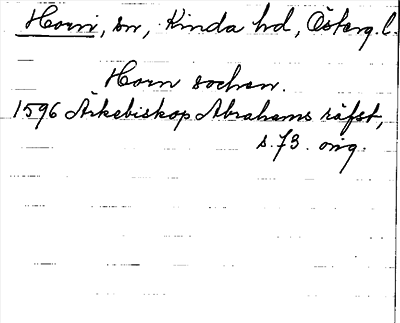 Horn, sn, Kinda hd, Österg. l.
Horn sochen.
1596 Ärkebiskop Abrahams räfst,
s. 73. orig.